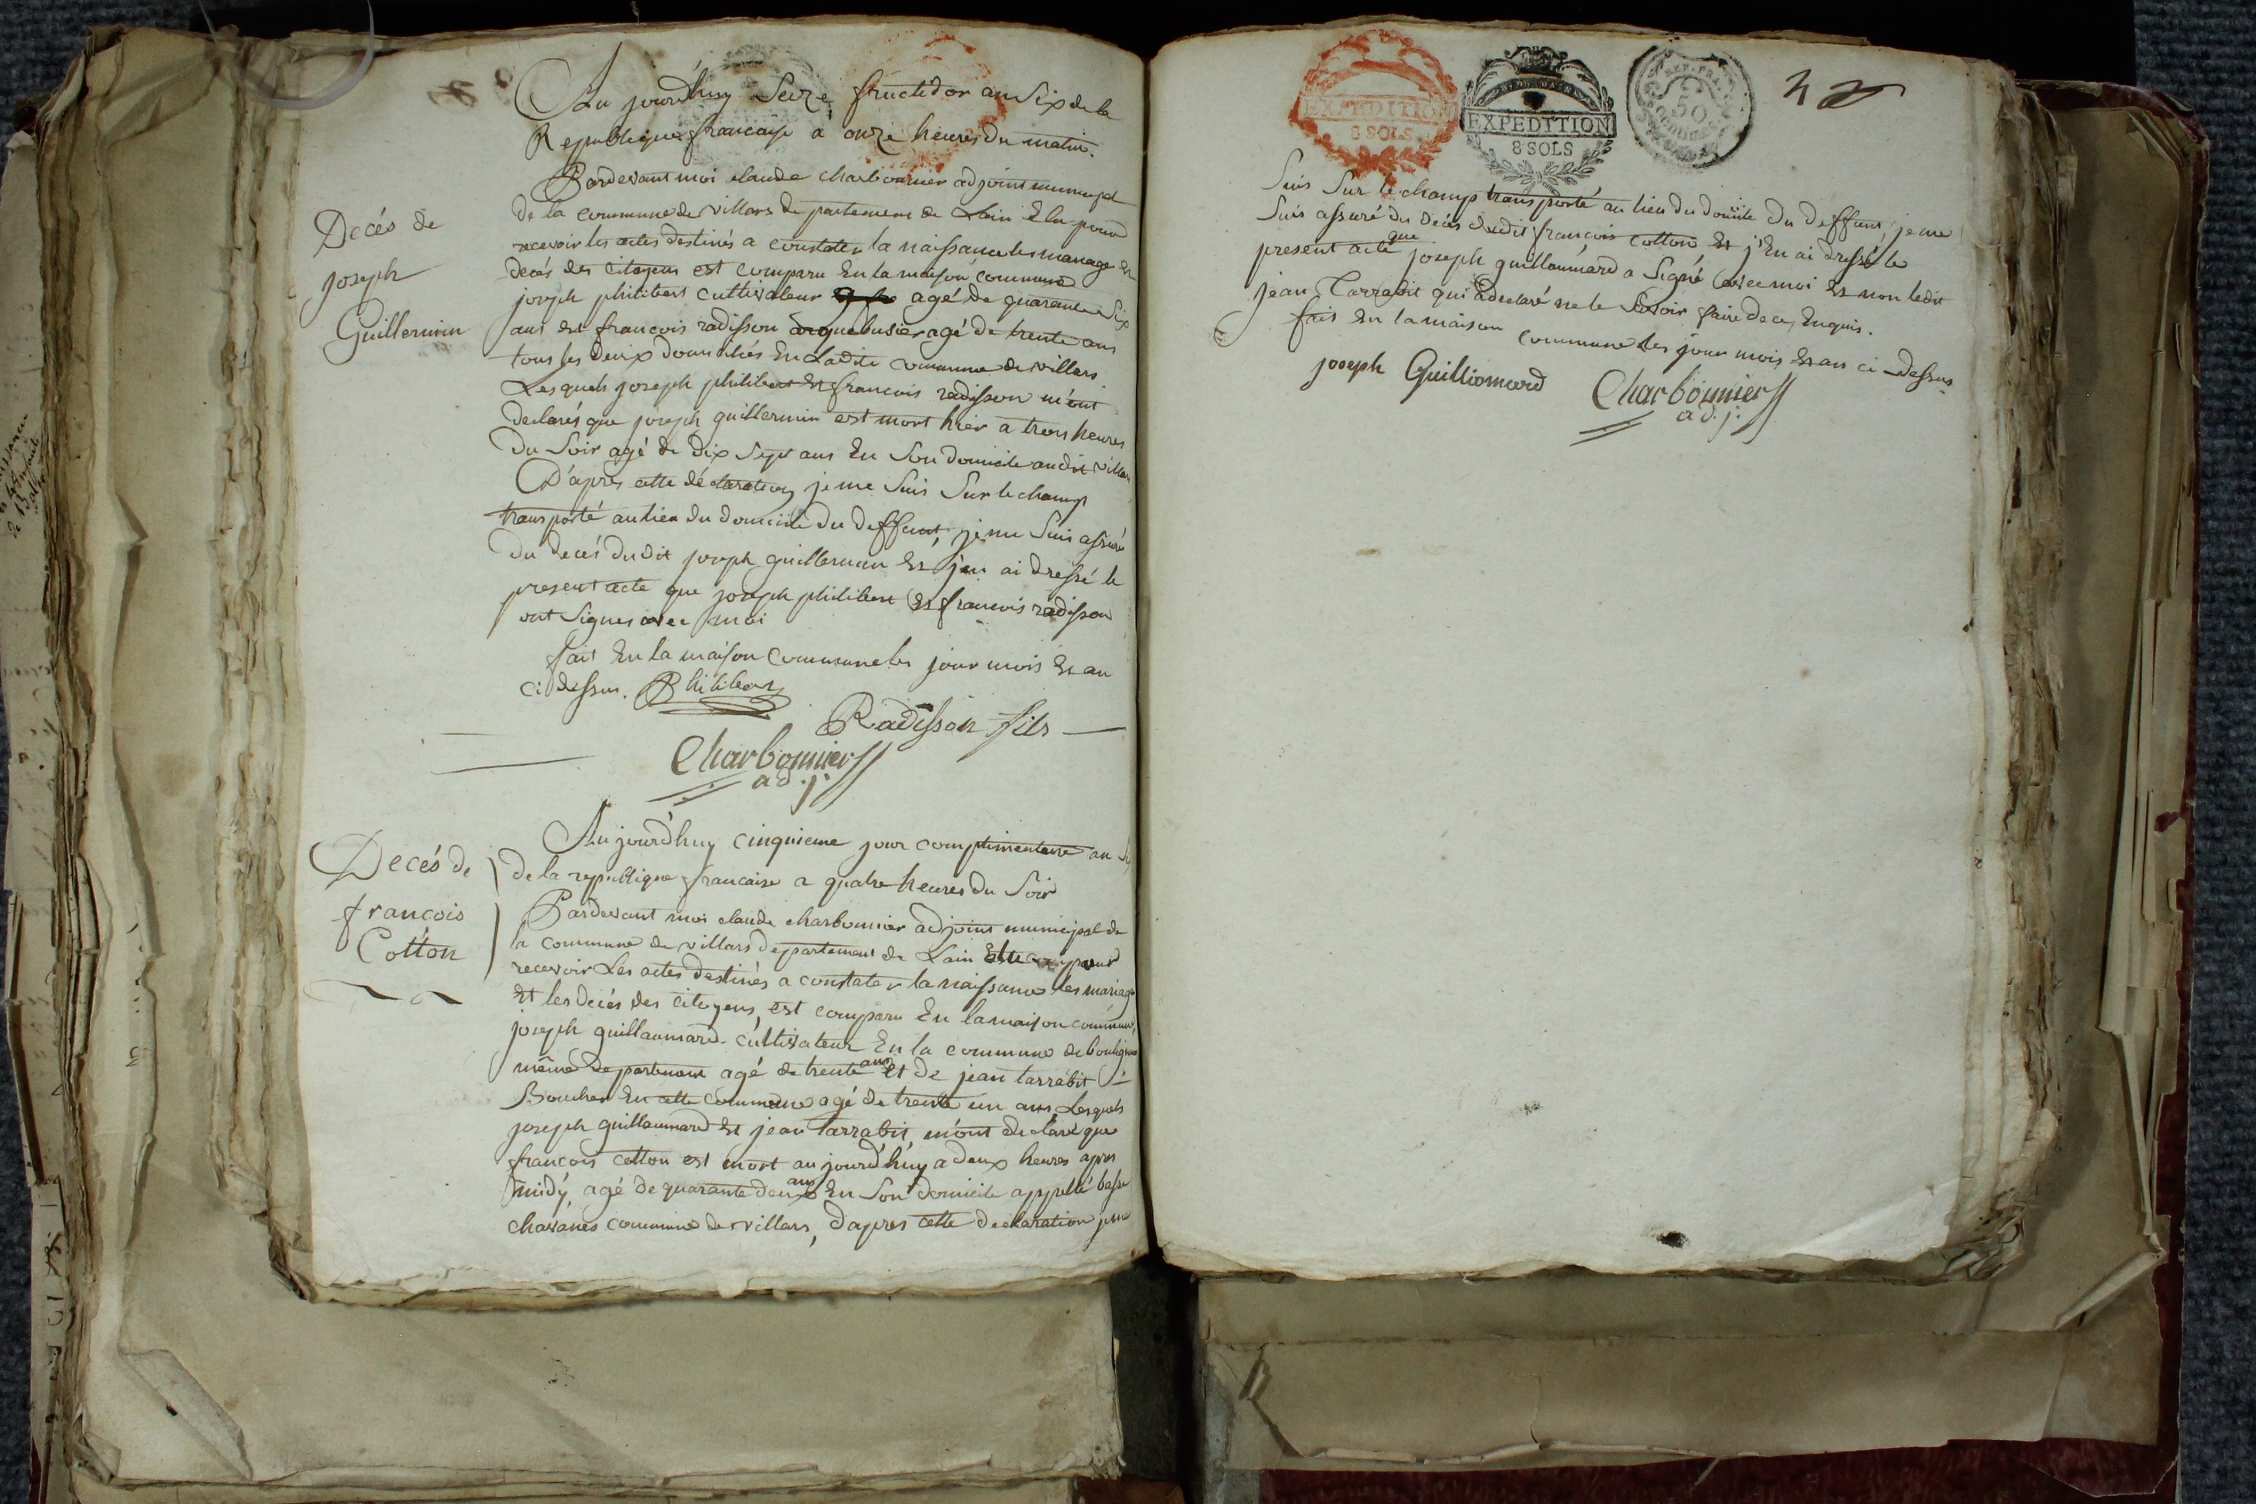 Au jourdhuy Seize fructidor an Six de la
Republique francaise a onze heures du matin.
Pardevant moi claude charbonnier adjoint municipal
de la commune de villars departement de Lain Elu pour
recevoir les actes destinés a constater la naissance les mariage et
decés des citoyens est comparu En la maison commune
joseph philibert cultivateur agé de quarante Six
ans et francois radisson arquebusier agé de trente ans
tous les deux domiciliés En Ladite commune de villars
Lesquels joseph philibert Et francois radisson m'ont
declarés que joseph guillermin est mort hier a trois heures
du Soir agé de dix Sept ans En Son domicile audit villars
D'aprés cette déclaration je me Suis Sur le champ
transporté au lieu du domicile du deffunt, je me Suis assuré
du decés dudit joseph guillermin Et j'en ai dressé le
present acte que joseph philibert Et francois radisson
ont Signés avec moi
fait En la maison commune les jour mois Et an
ci dessus. Philibert
Radisson fils
Charbonnier
adj.
Decés de
joseph
Guillermin
Aujourdhuy cinquieme jour complimentaire an
de la republique francaise a quatre heures du Soir
Pardevant moi claude charbonnier adjoint municipal de
la commune de villars departement de Lain Elu pour
recevoir Les actes destinés a constater la naissance les mariage
Et les decés des citoyens, est comparu En la maison commune,
joseph guillaumard cultivateur En la commune de bouligneux
même departement agé de trente ans Et de jean tarrabit
Boucher En cette commune agé de trente un ans Lesquels
joseph guillaumard Et jean tarrabit, m'ont declaré que
francois cotton est mort aujourd'huy a deux heures apres
midy agé de quarante deux ans En Son domicile appellé basse
chavanes commune de villars, d'apres cette declaration je me
Decés de
francois
Cotton
EXPEDITION
8 SOLS
EXPEDITION
8 SOLS
REP. FRA.
50
centimes
Suis Sur le champ transporté au lieu du domicile du deffunt, je me
Suis assuré du decés dudit francois cotton Et j'En ai dressé le
present acte que joseph guillaumard a Signé avec moi Et non ledit
jean Tarrabit qui a declaré ne le Savoir faire de ce Enquis.
fait En la maison commune les jour mois Et an ci-dessus
joseph Guilliomard
Charbonnier
adj.